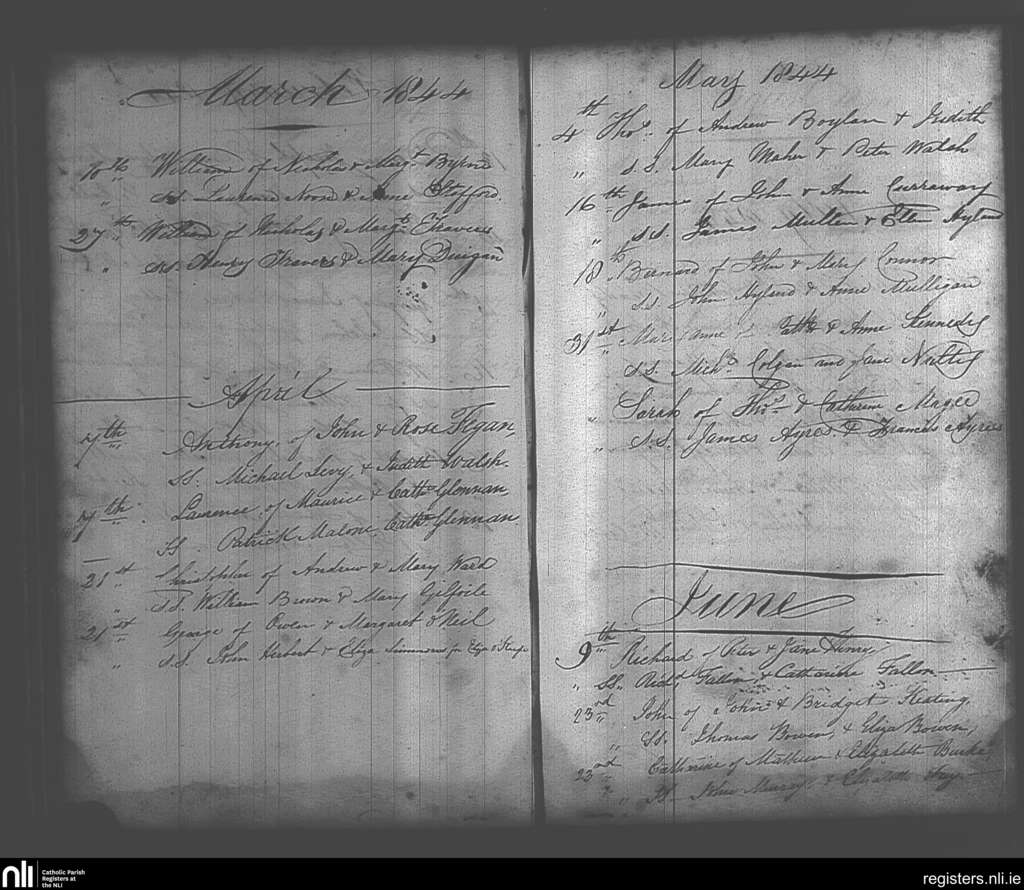 March 1844
10th William of Nicholas & Margt Byrne
" SS. Laurence & Anne Stafford.
27th William of Nicholas & Margt Travers
" SS. Henry Travers & Mary Duigan
April
7th Anthony of John & Rose Fegan,
SS. Michael Levy, & Judith Walsh.
7th Laurence of Maurice & Cathe Glennan,
SS. Patrick Malone, Cathe Glennan
21st Christopher of Andrew & Mary Ward
" S.S. William Brown & Mary Gilfoile
21st George of Owen & Margaret O'Neil
" S.S. John Hebert & Eliza Simmons for Eliza
May 1844
4th Thos. of Andrew Boylan & Judith
" S.S. Mary Maher & Peter Walsh
16th James of John & Anne Curraway
" S.S. James Mullen & Ellen Hyland
18th Bernard of John & Mary Connor
" S.S. John Hyland & Anne Mulligan
31st Mary Anne & Anne Kennedy
S.S. Michl Colgan and Jane
" Sarah of Thos. & Catherine Magee
" S.S. James Ayres & Frances Ayres
June
9th Richard of Peter & Jane Henry,
" SS. Richd Fallon, & Catharine Fallon
23rd John of John & Bridget Keating,
" SS. Thomas Bowen, & Eliza Bowen,
23rd Catharine of Mathew & Elizabeth Burke
" SS. John Murray & Elizabeth
nli
Catholic Parish
Registers at
the NLI
registers.nli.ie